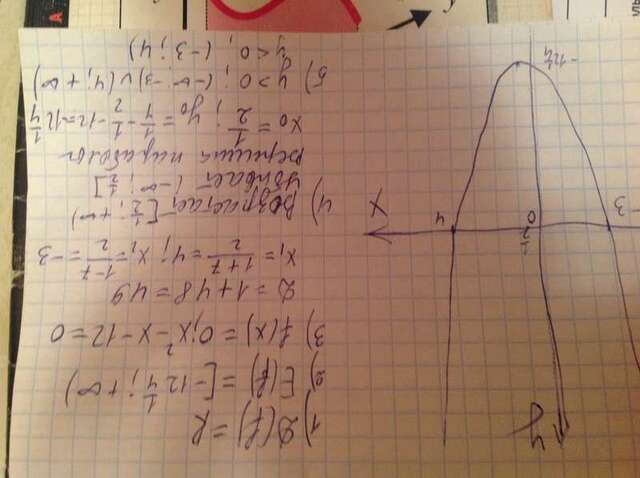 1) D(f) = R
2) E(f) = [-12 1/4; +∞)
3) f(x) = 0; x² - x - 12 = 0
D = 1 + 48 = 49
x₁ = (1+7)/2 = 4; x₁ = (1-7)/2 = -3
4) Возрастает [1/2; +∞)
Убывает (-∞; 1/2]
вершина параболы
x₀ = 1/2; y₀ = 1/4 - 1/2 - 12 = 12 1/4
5) y > 0; (-∞; -3) ∪ (4; +∞)
y < 0; (-3; 4)
y
3
0
1/2
4
X
-12 1/4
A